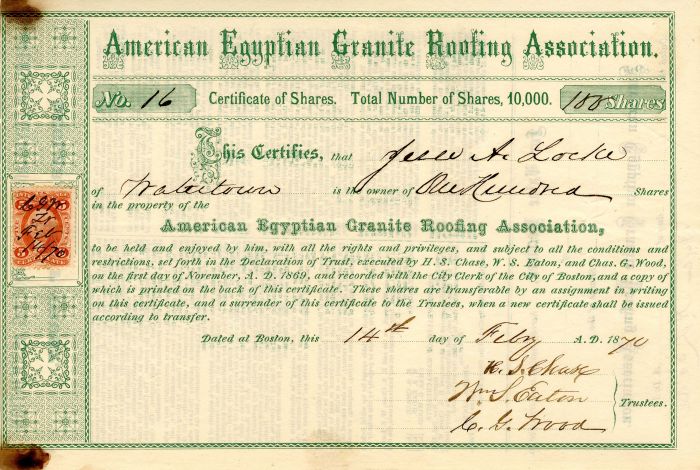 American Egyptian Granite Roofing Association.
No. 16 Certificate of Shares. Total Number of Shares, 10,000. 100 Shares
This Certifies, that Jesse A. Locke
of Watertown is the owner of One Hundred Shares
in the property of the
American Egyptian Granite Roofing Association,
to be held and enjoyed by him, with all the rights and privileges, and subject to all the conditions and
restrictions, set forth in the Declaration of Trust, executed by H. S. Chase, W. S. Eaton, and Chas. G. Wood,
on the first day of November, A. D. 1869, and recorded with the City Clerk of the City of Boston, and a copy of
which is printed on the back of this certificate. These shares are transferable by an assignment in writing
on this certificate, and a surrender of this certificate to the Trustees, when a new certificate shall be issued
according to transfer.
Dated at Boston, this 14th day of Feby A. D. 1870
H. S. Chase
Wm S. Eaton
C. G. Wood
Trustees.